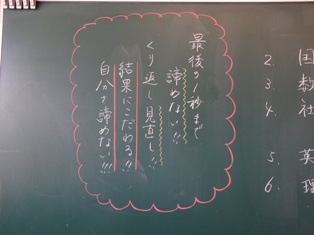 最後の1秒まで
諦めない!!
くり返し見直し!!
結果にこだわる!!
自分で諦めない!!!
2. 国
3. 数
4. 社
5. 英
6. 理